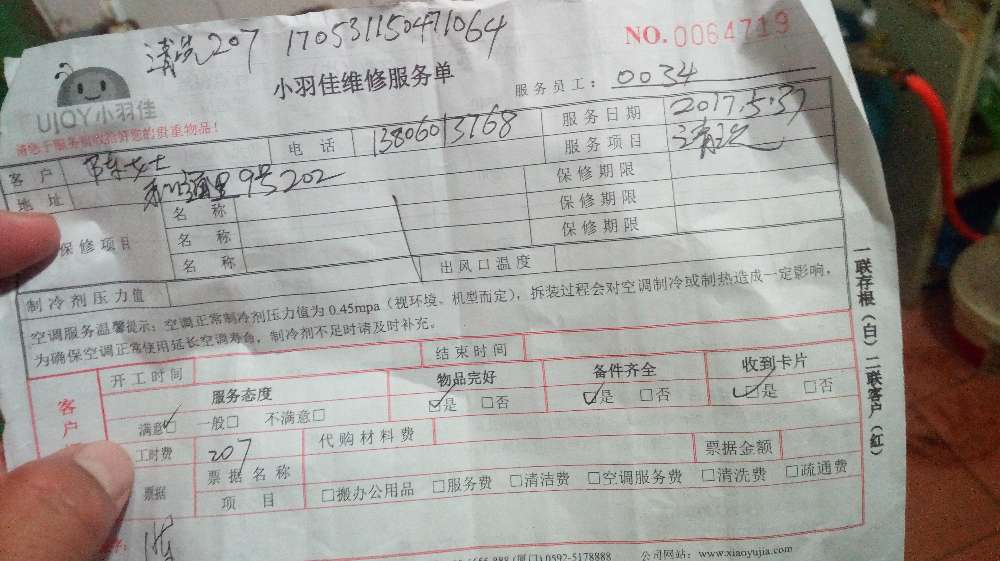 清洗207 170531150471064
NO.0064719
UJOY小羽佳
小羽佳维修服务单
服务员工：0034
请您于服务前收拾好您的贵重物品！
客户 陈女士 电话 13806013768 服务日期 2017.5.31
地址 9号202 服务项目 清洗
保修项目 名称 保修期限
名称 保修期限
名称 保修期限
制冷剂压力值 出风口温度
空调服务温馨提示：空调正常制冷剂压力值为0.45mpa（视环境、机型而定），拆装过程会对空调制冷或制热造成一定影响，
为确保空调正常使用延长空调寿命，制冷剂不足时请及时补充。
客户
开工时间 结束时间
服务态度 物品完好 备件齐全 收到卡片
满意□ 一般□ 不满意□ ☑是 □否 ☑是 □否 ☑是 □否
工时费 207 代购材料费
票据 票据名称 票据金额
项目 □搬办公用品 □服务费 □清洁费 □空调服务费 □清洗费 □疏通费
一联存根（白）二联客户（红）
888 (厦门) 0592-5178888 公司网站：www.xiaoyujia.com